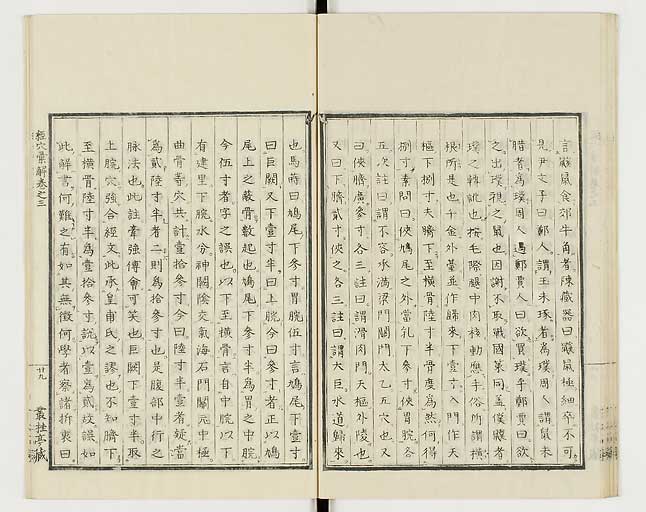 言鼷鼠食郊牛角者陳藏器曰鼷鼠極細卒不可
是尹文子曰鄭人謂玉未琢者為璞周人謂鼠未
腊者為璞周人遇鄭賈人曰欲買璞乎鄭賈曰欲
之出璞視之鼠也因謝不取戰國策同蓋僕鼷者
璞之轉訛也按毛際腿中肉核動應手俗所謂橫
根所是也千金外臺並作歸來下壹寸入門作天
樞下捌寸夫臍下至橫骨陸寸半骨度為然何得
捌寸素問曰俠鳩尾之外當乳下參寸俠胃脘各
五次註曰謂不容承滿梁門關門太乙五穴也又
曰俠臍廣參寸各三註曰謂滑肉門天樞外陵也
又曰下臍貳寸俠之各三註曰謂大巨水道歸來
也馬蒔曰鳩尾下參寸胃脘伍寸言鳩尾下壹寸
曰巨闕又下壹寸半曰上脘今曰參寸者正以鳩
尾上之蔽骨數起也鳩尾下參寸半為胃之中脘
今伍寸者字之誤也以下至橫骨言自中脘以下
有建里下脘水分神闕陰交氣海石門關元中極
曲骨等穴共計壹拾參寸今曰陸寸半壹者疑當
為貳陸寸半者二則為拾參寸也是腹部中行之
脉法也此註牽強傅會可笑也巨闕下壹寸半取
上脘穴強合經文此承皇甫氏之謬也不知臍下
至橫骨陸寸半為壹拾參寸說以壹為貳歧誤如
此解書何難之有如其無徵何學者察諸折衷曰
經穴彙解卷之三
廿九
叢桂亭藏